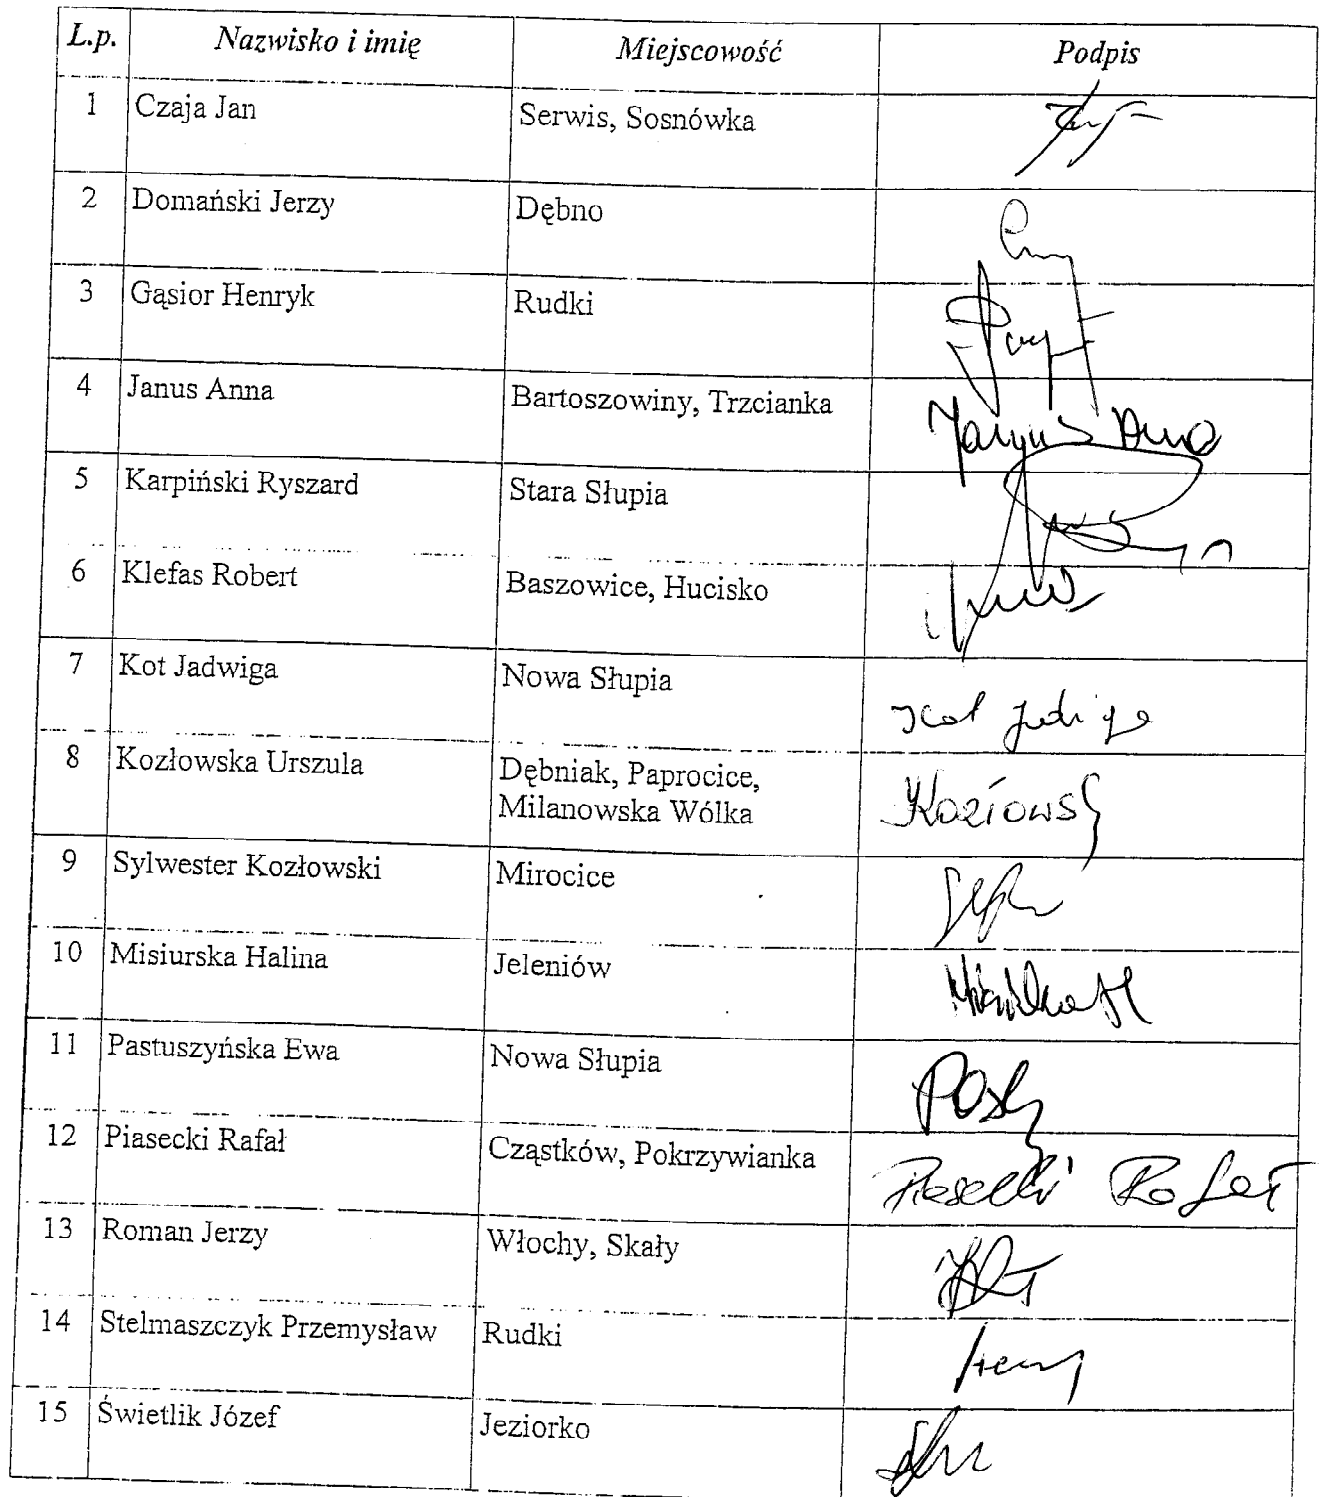 L.p. Nazwisko i imię Miejscowość Podpis
1 Czaja Jan Serwis, Sosnówka
2 Domański Jerzy Dębno
3 Gąsior Henryk Rudki
4 Janus Anna Bartoszowiny, Trzcianka
5 Karpiński Ryszard Stara Słupia
6 Klefas Robert Baszowice, Hucisko
7 Kot Jadwiga Nowa Słupia Kot Jadwiga
8 Kozłowska Urszula Dębniak, Paprocice,
Milanowska Wólka
9 Sylwester Kozłowski Mirocice
10 Misiurska Halina Jeleniów
11 Pastuszyńska Ewa Nowa Słupia
12 Piasecki Rafał Cząstków, Pokrzywianka Piasecki Rafał
13 Roman Jerzy Włochy, Skały
14 Stelmaszczyk Przemysław Rudki
15 Świetlik Józef Jeziorko